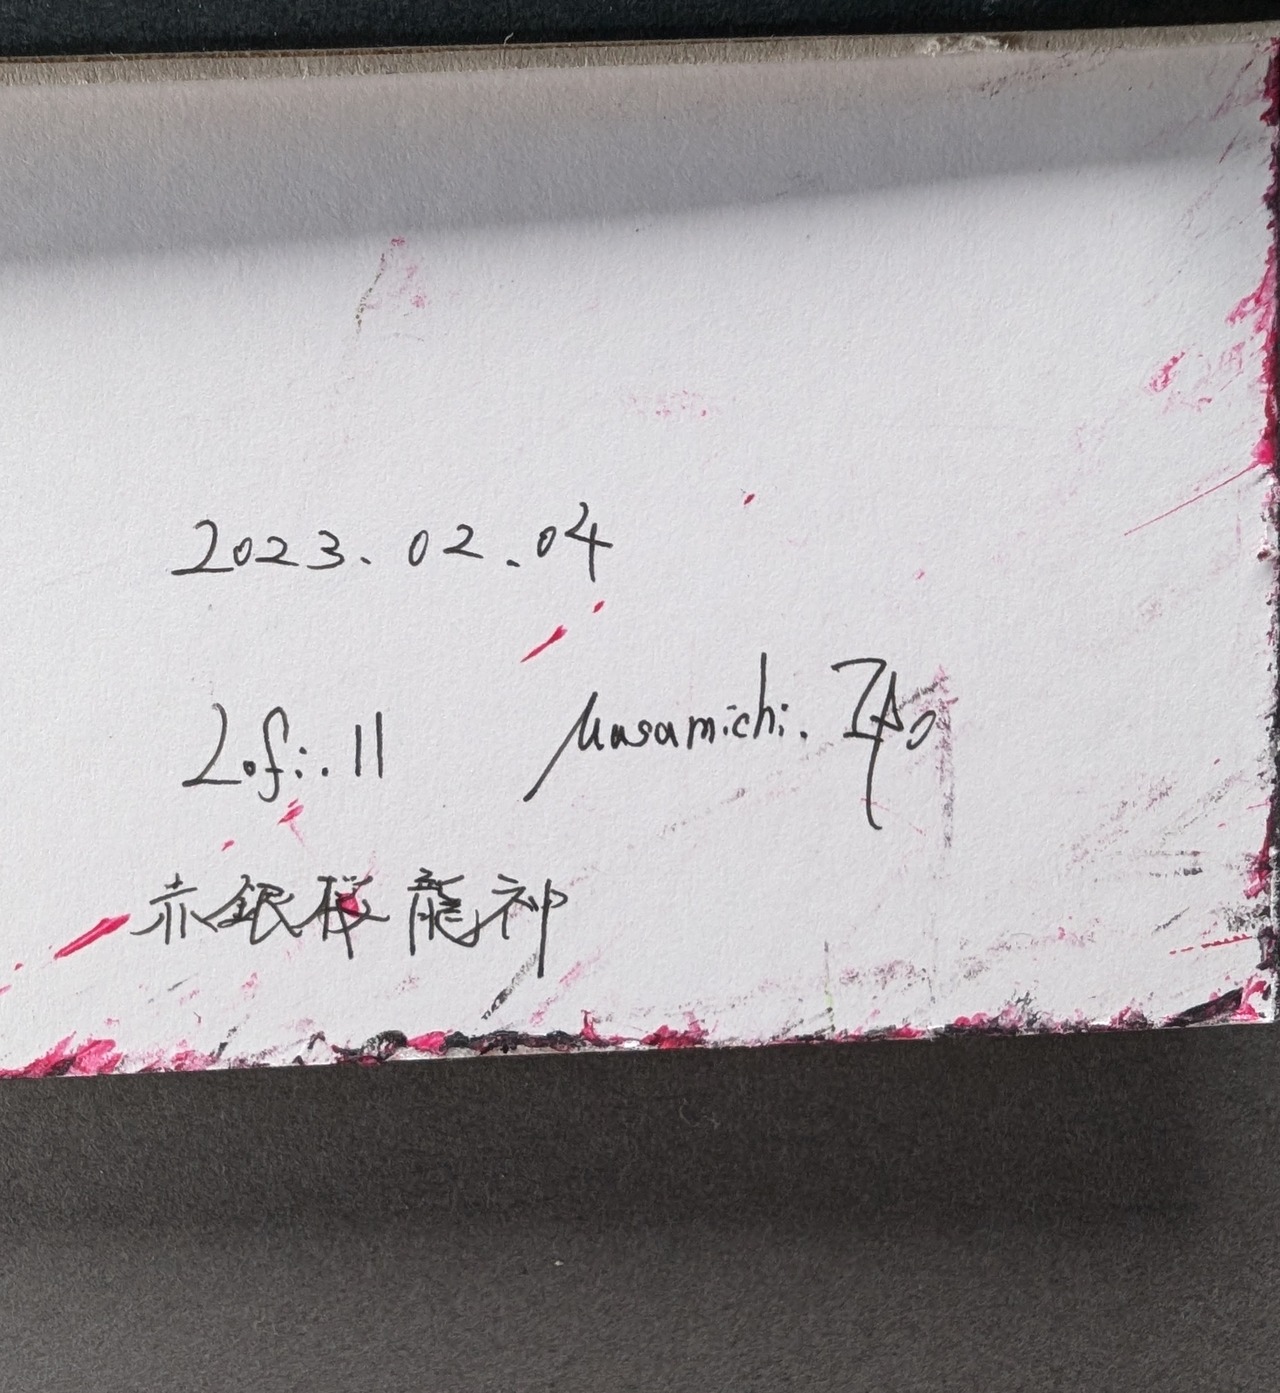 2023.02.04
Lofi.11 Masamichi. Ito
赤銀桜龍神